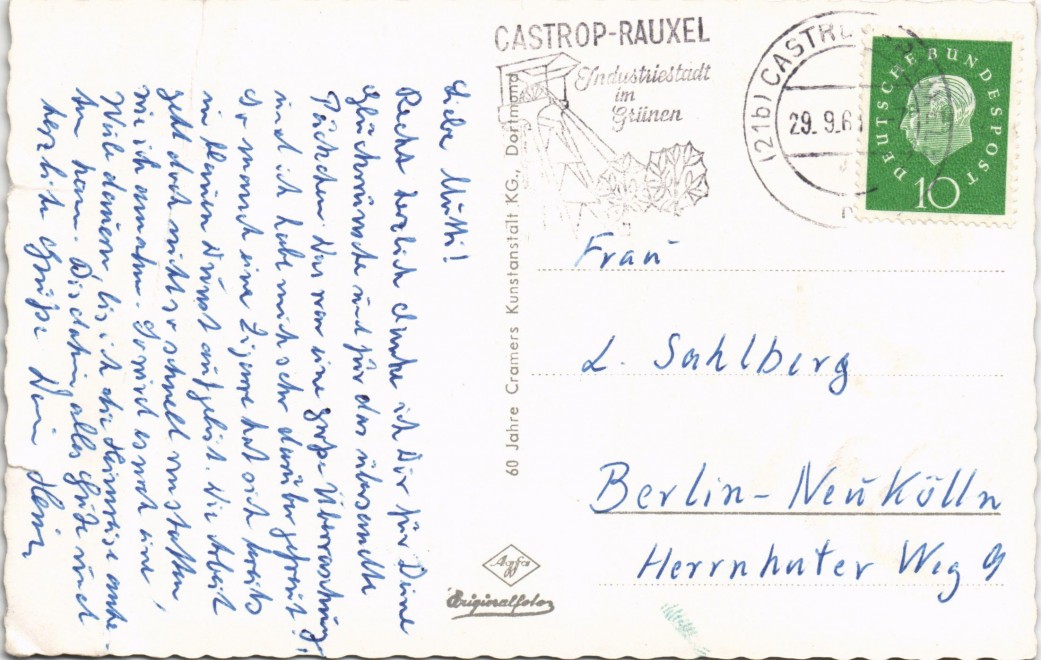 Liebe Mutti!
Recht herzlich danke ich Dir für Deine
Glückwünsche und für das übersandte
Päckchen. Das war eine große Überraschung
und ich habe mich sehr darüber gefreut!
So manch eine Zigarre hat sich bereits
in kleinen Dunst aufgelöst. Die Arbeit
geht doch nicht so schnell vonstatten,
wie ich annahm. So wird es noch eine
Weile dauern, bis ich die Heimreise ante-
ten kann. Bis dahin alles Gute und
herzliche Grüße Dein Heinz
60 Jahre Cramers Kunstanstalt KG., Dortmund
CASTROP-RAUXEL
Industriestadt
im
Grünen
(21b) CASTR
29. 9. 61
DEUTSCHE BUNDESPOST
10
Frau
L. Sahlberg
Berlin-Neukölln
Herrnhuter Weg 9
Agfa
Originalfoto